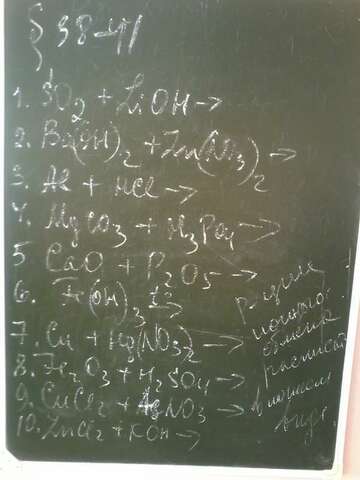 § 38-41
1. SO2 + LiOH →
2. Ba(OH)2 + Zn(NO3)2 →
3. Al + HCl →
4. MgCO3 + H3PO4 →
5 CaO + P2O5 →
6. Fe(OH)3 t° →
7. Cu + Hg(NO3)2 →
8. Fe2O3 + H2SO4 →
9. CuCl2 + AgNO3 →
10. ZnCl2 + KOH →
Реакции
ионного
обмена
расписать
в ионном
виде.